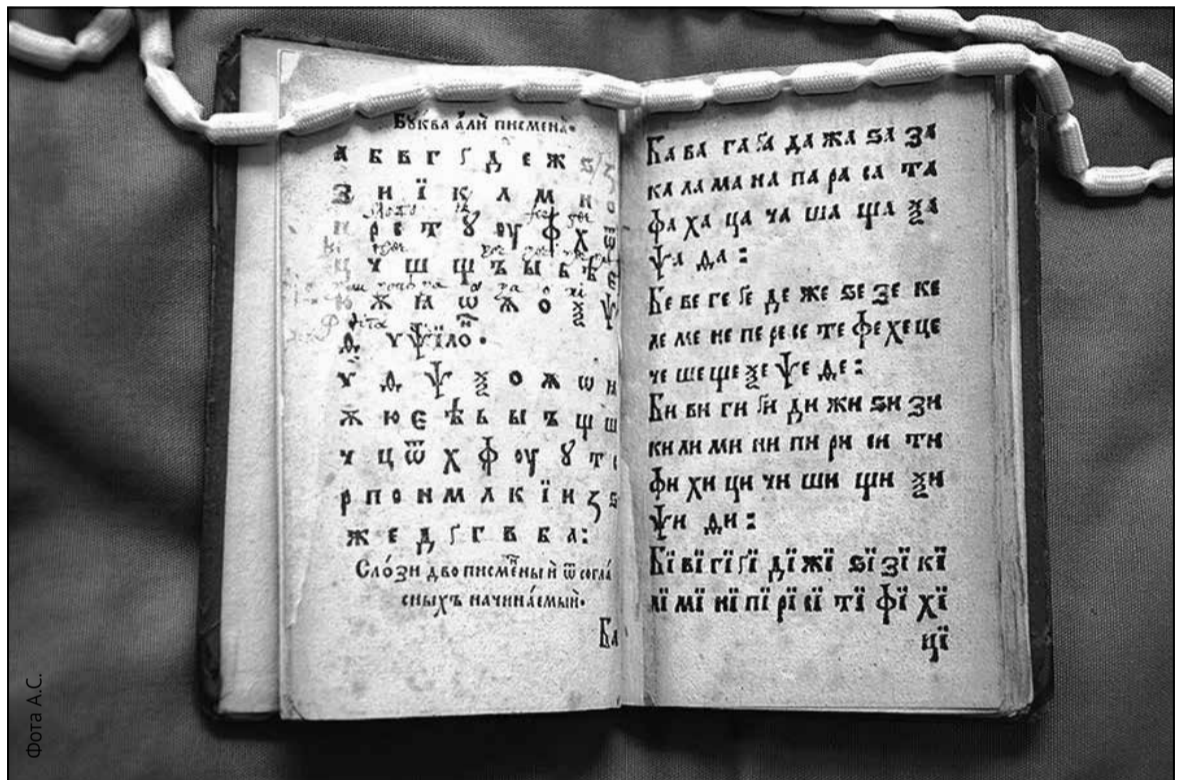 Бꙋква а҆лѝ писмена̀.
а б в г ґ д е ж ѕ
з и ї к л м н о
п р с т ꙋ оу ф х ѿ
ц ч ш щ ъ ы ь ѣ є
ж ѧ ѡ ѫ о ѯ ѱ
ѳ ѵ ѱїло.
ѵ ѳ ѱ ѯ о ѫ ѡ ѧ
ѫ ю є ѣ ь ы ъ щ ш
ч ц ѿ х ф оу ꙋ т с
р п о н м л к ї и ꙁ ѕ
ж е д ґ г в б а:
Сло́зи двописме́ныѝ ѿ согла́
сныхъ начина́емыѝ.
Ба
Ба ва га ґа да жа ѕа за
ка ла ма на па ра са та
фа ха ца ча ша ща ѯа
ѱа ѳа :
Бе ве ге ґе де же ѕе зе ке
ле ме не пе ре се те фе хе це
че ше ще ѯе ѱе ѳе :
Би ви ги ґи ди жи ѕи зи
ки ли ми ни пи ри си ти
фи хи ци чи ши щи ѯи
ѱи ѳи :
Бї вї гї ґї дї жї ѕї зї кї
лї мї нї пї рї сї тї фї хї
цї
Фота А.С.